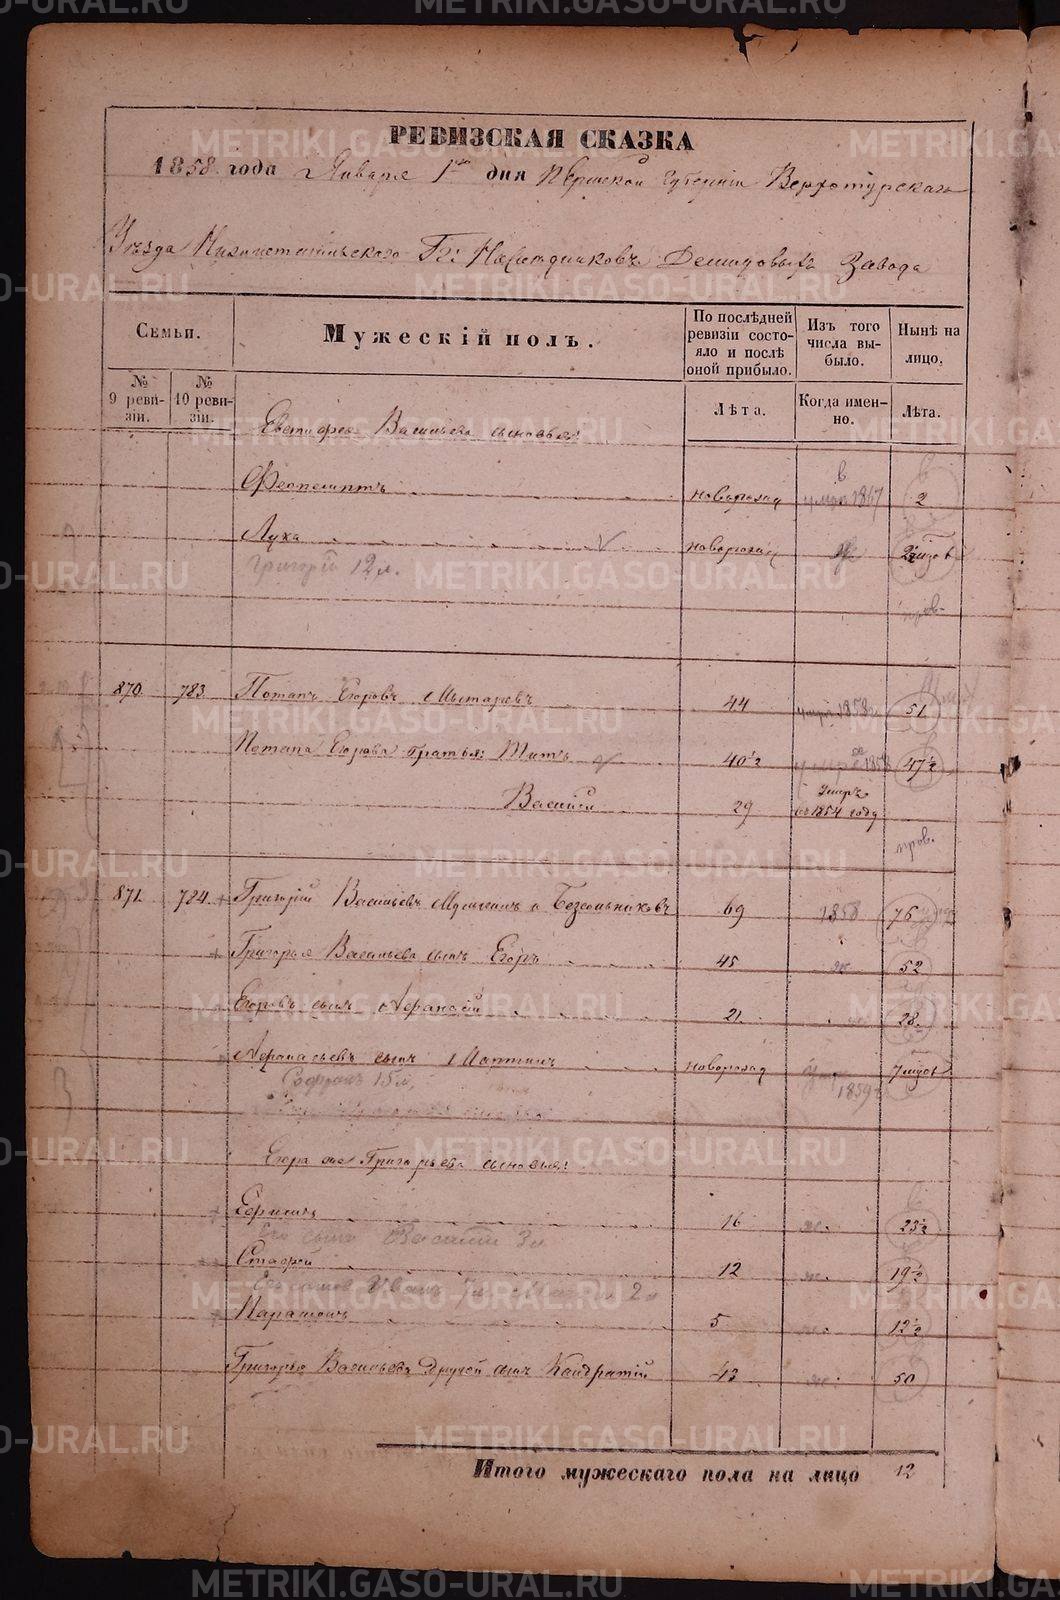 РЕВИЗСКАЯ СКАЗКА
1858 года Января 1го дня Пермской губерніи Верхотурскаго
Уѣзда Нижнетагильскаго Гг: Наслѣдниковъ Демидовыхъ Завода
Семьи.
Мужескій полъ.
По послѣдней ревизіи состояло и послѣ оной прибыло.
Изъ того числа выбыло.
Нынѣ на лицо.
№ 9 ревизіи.
№ 10 ревизіи.
Лѣта.
Когда именно.
Лѣта.
Васильева сыновья:
Феопемптъ новорожд 2
Лука новорожд
Григорій 12 л.
870. 783. Потапъ Егоровъ Мытаревъ 44 1858 51
Потапа Егорова братья: Титъ 40½ 1858 47½
Василій 29 Умеръ въ 1854 году
пров.
871. 784. Григорій Васильевъ Безсольниковъ 69 1858 76
Григорья Васильева сынъ Егоръ 45 52
Егоровъ сынъ Афанасій 21 28
Афанасьевъ сынъ Мартинъ новорожд 1859 7 мцов
Софронъ 15 л.
Егора же Григорьева сыновья:
Ефимъ 16 23½
Его сынъ Василій 3 л
Стафей 12 19½
Иванъ 2 л
Парамонъ 5 12½
Григорья Васильева другой сынъ Кондратій 43 50
Итого мужескаго пола на лицо 12
METRIKI.GASO-URAL.RU